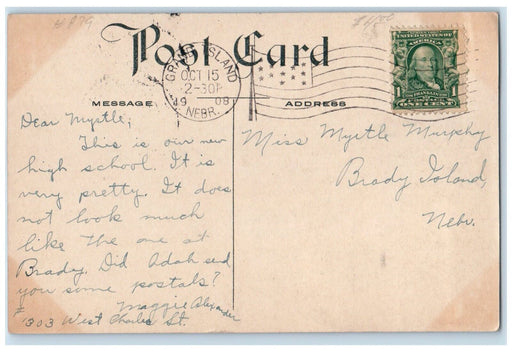 Post Card
GRAND ISLAND
OCT 15
2-30P
1908
NEBR.
UNITED STATES OF AMERICA
FRANKLIN
1 1
ONE CENT
MESSAGE
ADDRESS
Dear Myrtle;
This is our new
high school. It is
very pretty. It does
not look much
like the one at
Brady. Did Adah send
you some postals?
Maggie Alexander
#1303 West Charles St.
Miss Myrtle Murphy
Brady Island,
Nebr.